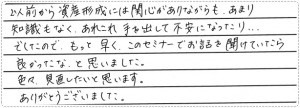 以前から資産形成には関心がありながらも、あまり
知識もなく、あれこれ手を出して不安になったり…
でしたので、もっと早く、このセミナーでお話を聞けていたら
良かったな、と思いました。
色々、見直したいと思います。
ありがとうございました。